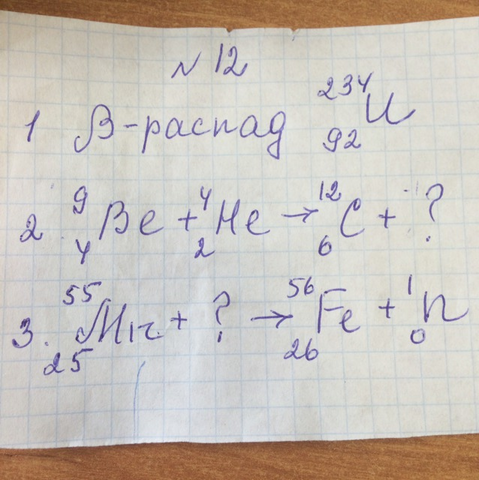 № 12
1 β-распад ²³⁴₉₂U
2 ⁹₄Be + ⁴₂He → ¹²₆C + ?
3. ⁵⁵₂₅Mn + ? → ⁵⁶₂₆Fe + ¹₀n